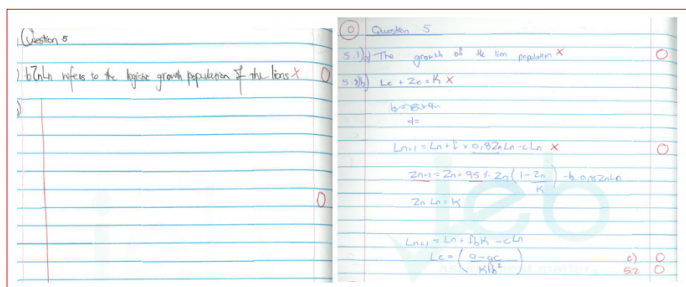 Question 5
bZnLn refers to the logistic growth population of the lions × 0
0
0 Question 5
5.1) a) The growth of the lion population × 0
Le + Ze = K ×
Ln+1 = Ln + f × 0,8ZnLn - cLn × 0
Zn+1 = Zn + 95% Zn (1 - Zn/K) - b 0,8ZnLn
Zn Ln = K
Ln+1 = Ln + fbK - cLn
Le = ( a - ac / Kfb² ) c) 0
5.2 0
ieb